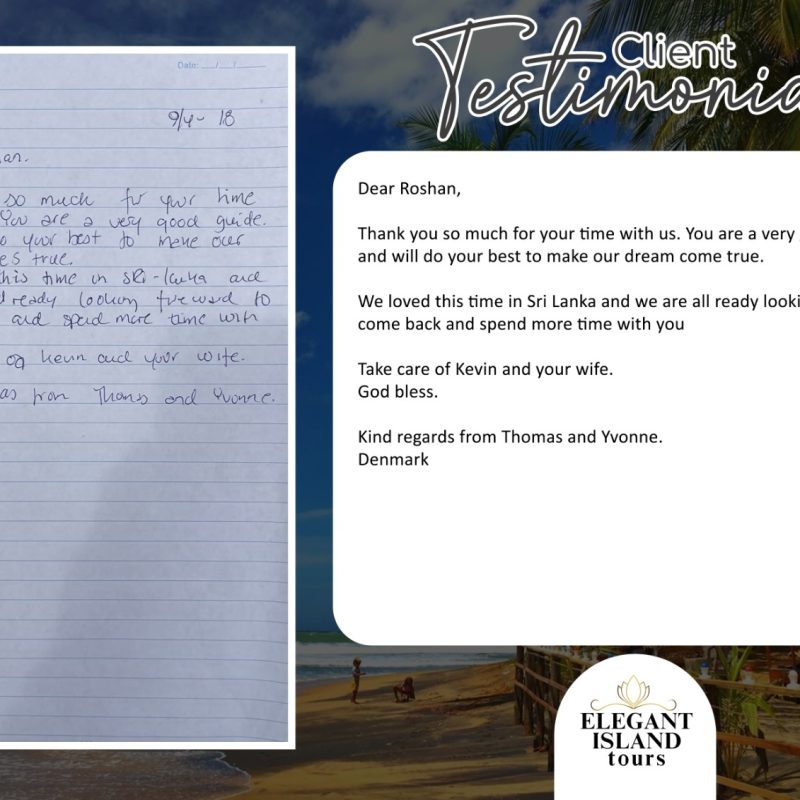 Date: __/__/____
9/4- 18
an.
so much for your time
You are a very good guide.
o your best to make our
es true.
this time in Sri-Lanka and
l ready looking foreward to
and spend more time with
og Kevin and your wife.
as from Thomas and Yvonne.
Client
Testimonia
Dear Roshan,
Thank you so much for your time with us. You are a very
and will do your best to make our dream come true.
We loved this time in Sri Lanka and we are all ready looki
come back and spend more time with you
Take care of Kevin and your wife.
God bless.
Kind regards from Thomas and Yvonne.
Denmark
ELEGANT
ISLAND
tours